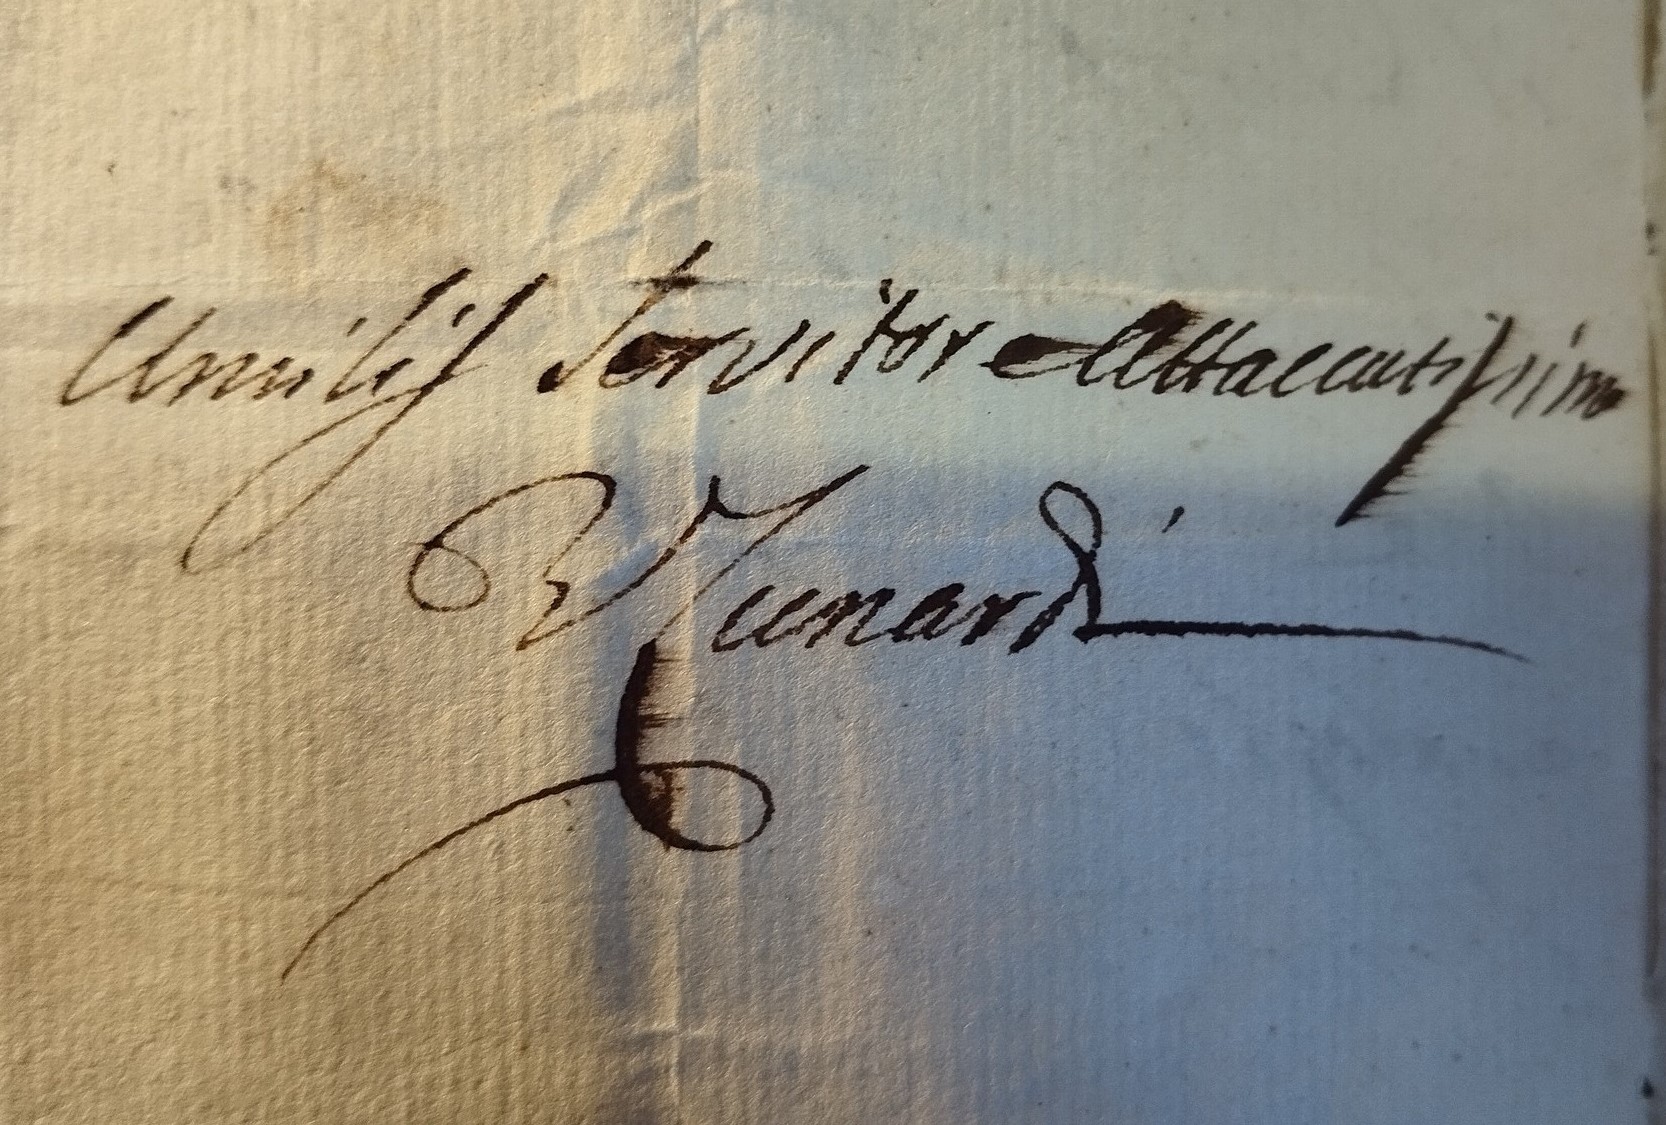 Umilis Servitor Attaccatissimo
V Lunardi